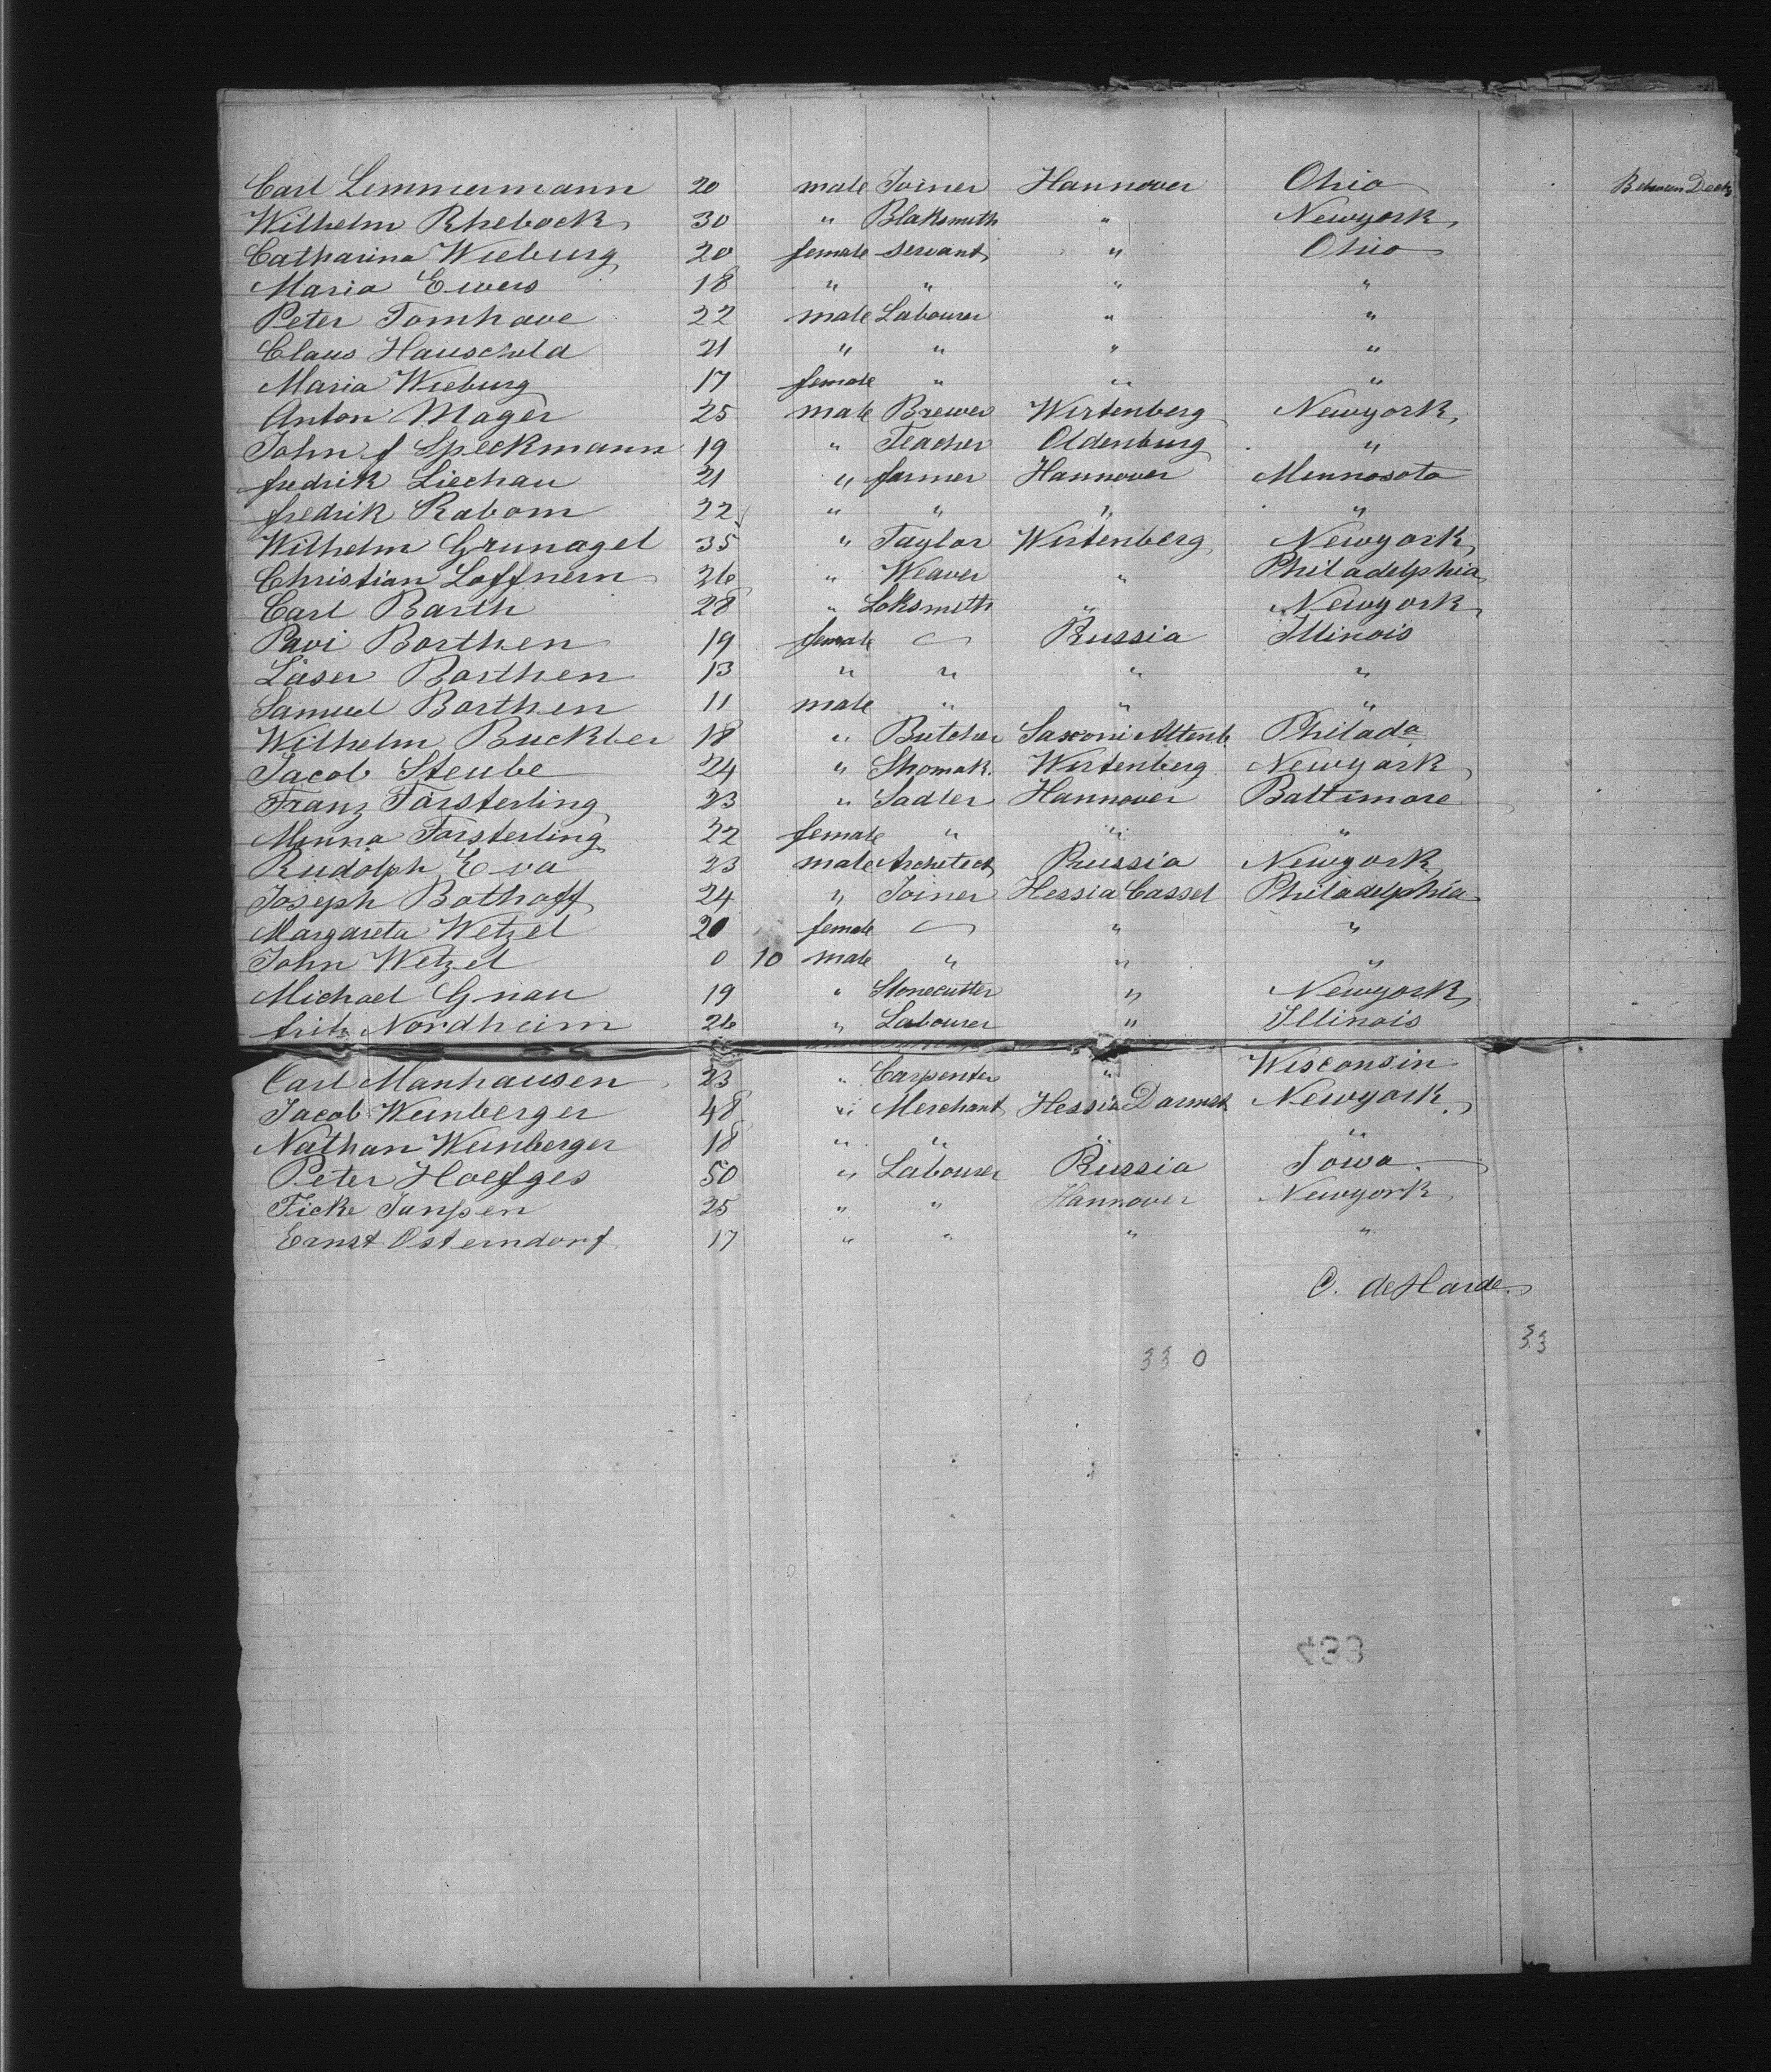 Carl Lemmermann 20 male Joiner Hannover Ohio Between Deck
Wilhelm Rhebock 30 " Blaksmith " Newyork
Catharina Wieburg 20 female servant " Ohio
Maria Ewers 18 " " " "
Peter Tomhave 22 male Labourer " "
Claus Hauschild 21 " " " "
Maria Wieburg 17 female " " "
Anton Mager 25 male Brewer Wirtenberg Newyork
John f Speckmann 19 " Teacher Oldenburg "
fredrik Liechau 21 " farmer Hannover Minnosota
fredrik Rabom 22 " " " "
Wilhelm Grunagel 35 " Taylor Wirtenberg Newyork
Christian Loffnern 26 " Weaver " Philadelphia
Carl Barth 28 " Loksmith " Newyork
Pavi Borthen 19 female Russia Illinois
Läser Borthen 13 " " " "
Samuel Borthen 11 male " " "
Wilhelm Buckber 18 " Butcher Saxoni Altenb Philada
Jacob Steube 24 " Shomak. Wirtenberg Newyork
Franz Försterling 23 " Sadler Hannover Baltimore
Minna Forsterling 22 female " " "
Rudolph Eva 23 male Architect Prussia Newyork
Joseph Bothoff 24 " Joiner Hessia Cassel Philadelphia
Margareta Wetzel 20 female " "
John Wetzel 0 10 male " " "
Michael Gnau 19 " Stonecutter " Newyork
fritz Nordheim 26 " Labourer " Illinois
Carl Manhausen 23 " Carpenter " Wisconsin
Jacob Weinberger 48 " Merchant Hessia Darmst Newyork
Nathan Weinberger 18 " " " "
Peter Hoefges 50 " Labourer Prussia Iowa
Ficke Janssen 25 " " Hannover Newyork
Ernst Osterndorf 17 " " " "
C. deHarde
33
33 0
433